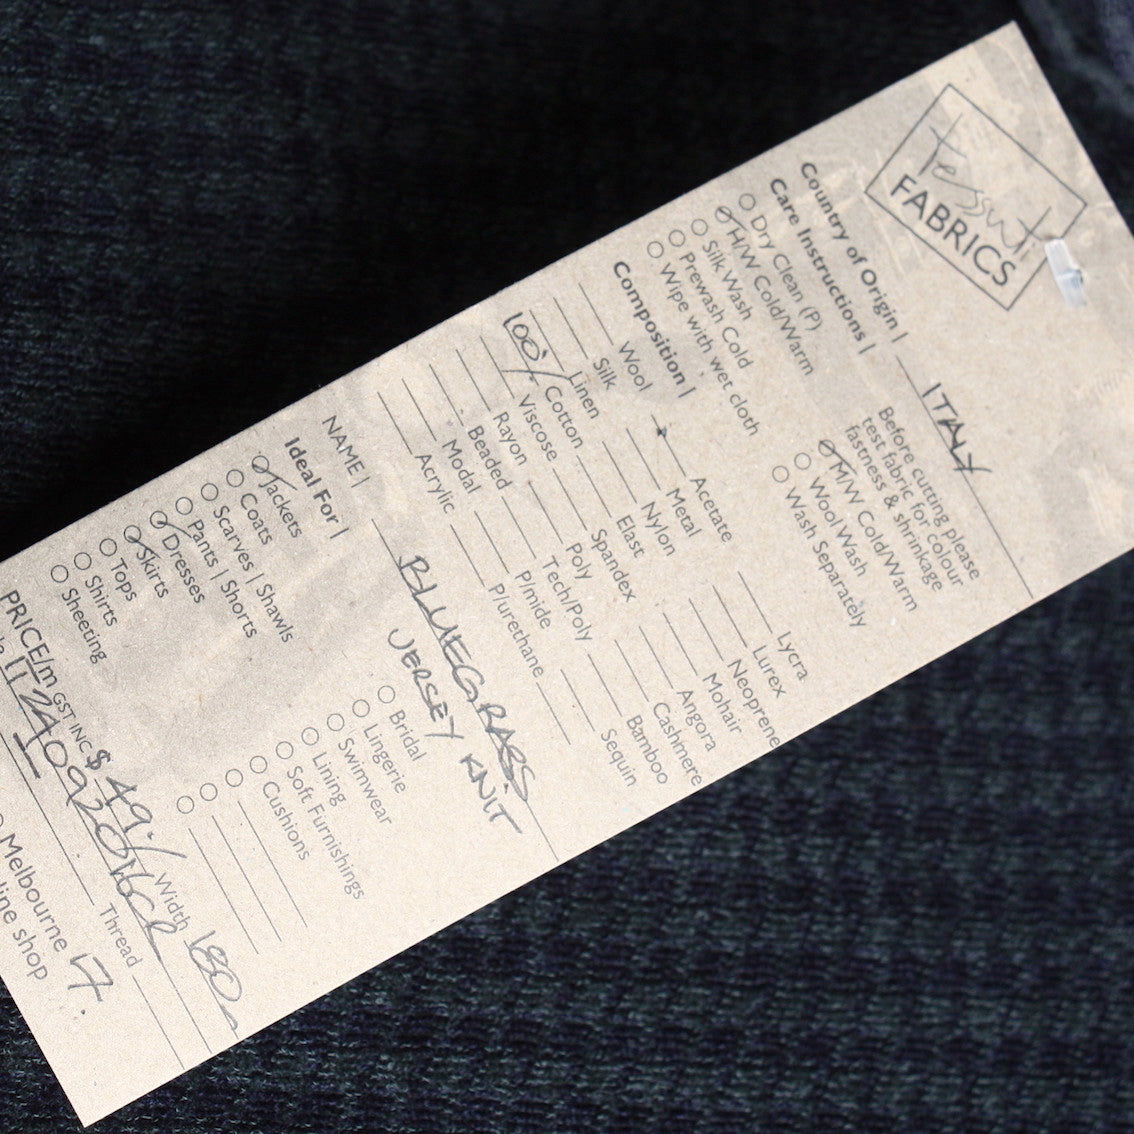 tessuti
FABRICS
Country of Origin | ITALY
Care Instructions |
Dry Clean (P)
H/W Cold/Warm
Silk Wash
Prewash Cold
Wipe with wet cloth
Before cutting please
test fabric for colour
fastness & shrinkage
M/W Cold/Warm
Wool Wash
Wash Separately
Composition |
Wool Acetate Lycra
Silk Metal Lurex
Linen Nylon Neoprene
100% Cotton Elast Mohair
Viscose Spandex Angora
Rayon Poly Cashmere
Beaded Tech/Poly Bamboo
Modal P/mide Sequin
Acrylic P/urethane
NAME | BLUEGRASS
JERSEY KNIT
Ideal For |
Jackets Bridal
Coats Lingerie
Scarves | Shawls Swimwear
Pants | Shorts Lining
Dresses Soft Furnishings
Skirts Cushions
Tops
Shirts
Sheeting
PRICE/m GST INC $ 49./ Width 180
Thread
Melbourne 17
line shop